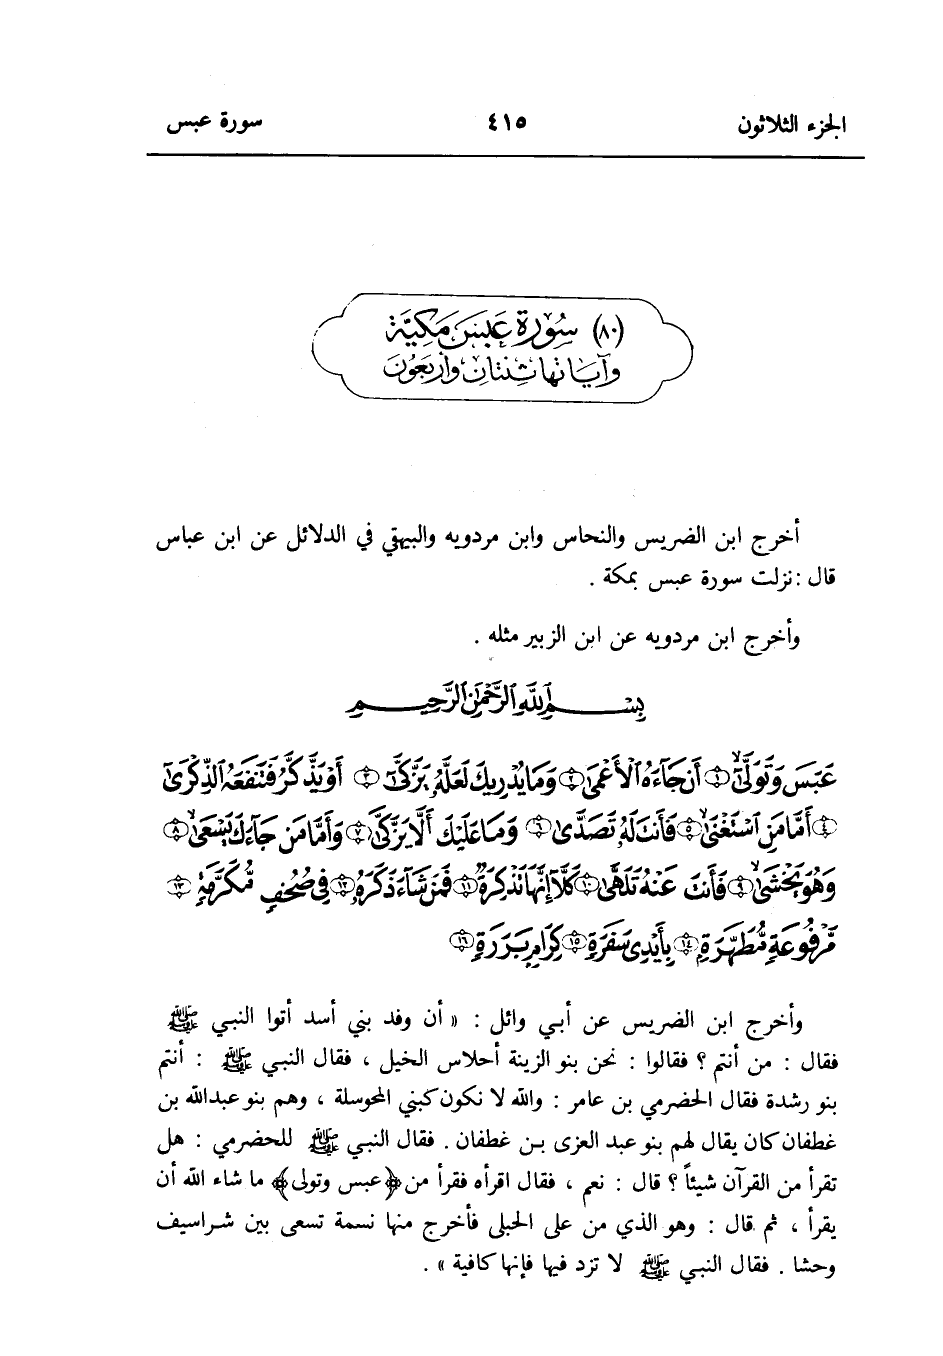 الجزء الثلاثون ٤١٥ سورة عبس
(٨٠) سُورَة عَبَسَ مَكِيَّة
وَآيَاتُهَا ثِنْتَانِ وَأَرْبَعُونَ
أخرج ابن الضريس والنحاس وابن مردويه والبيهقي في الدلائل عن ابن عباس
قال : نزلت سورة عبس بمكة .
وأخرج ابن مردويه عن ابن الزبير مثله .
بِسْمِ اللَّهِ الرَّحْمَٰنِ الرَّحِيمِ
عَبَسَ وَتَوَلَّىٰٓ ۝١ أَن جَآءَهُ ٱلْأَعْمَىٰ ۝٢ وَمَا يُدْرِيكَ لَعَلَّهُۥ يَزَّكَّىٰٓ ۝٣ أَوْ يَذَّكَّرُ فَتَنفَعَهُ ٱلذِّكْرَىٰٓ
۝٤ أَمَّا مَنِ ٱسْتَغْنَىٰ ۝٥ فَأَنتَ لَهُۥ تَصَدَّىٰ ۝٦ وَمَا عَلَيْكَ أَلَّا يَزَّكَّىٰ ۝٧ وَأَمَّا مَن جَآءَكَ يَسْعَىٰ ۝٨
وَهُوَ يَخْشَىٰ ۝٩ فَأَنتَ عَنْهُ تَلَهَّىٰ ۝١٠ كَلَّآ إِنَّهَا تَذْكِرَةٌ ۝١١ فَمَن شَآءَ ذَكَرَهُۥ ۝١٢ فِى صُحُفٍ مُّكَرَّمَةٍ ۝١٣
مَّرْفُوعَةٍ مُّطَهَّرَةٍۭ ۝١٤ بِأَيْدِى سَفَرَةٍ ۝١٥ كِرَامٍۭ بَرَرَةٍ ۝١٦
وأخرج ابن الضريس عن أبي وائل : « أن وفد بني أسد أتوا النبي ﷺ
فقال : من أنتم ؟ فقالوا : نحن بنو الزينة أحلاس الخيل ، فقال النبي ﷺ : أنتم
بنو رشدة فقال الحضرمي بن عامر : والله لا نكون كبني المحوسلة ، وهم بنو عبدالله بن
غطفان كان يقال لهم بنو عبد العزى بن غطفان . فقال النبي ﷺ للحضرمي : هل
تقرأ من القرآن شيئاً ؟ قال : نعم ، فقال اقرأه فقرأ من ﴿عبس وتولى﴾ ما شاء الله أن
يقرأ ، ثم قال : وهو الذي من على الحبلى فأخرج منها نسمة تسعى بين شراسيف
وحشا . فقال النبي ﷺ لا تزد فيها فإنها كافية » .